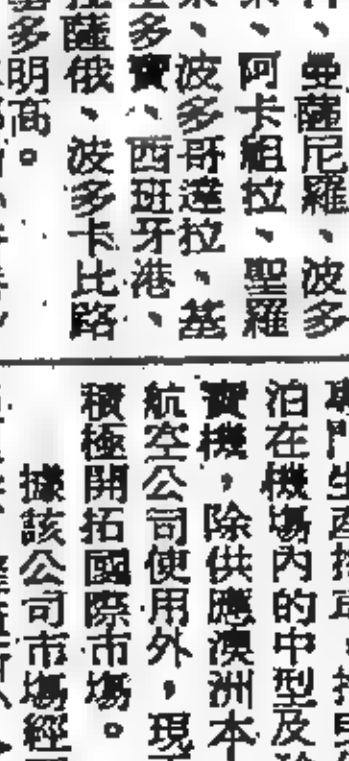 、曼薩尼羅、波多
、阿卡組拉、聖羅
、波多哥達拉、基
多寶、西班牙港、
薩俄、波多卡比路
多明高。
泊在機場內的中型及
機，除供應澳洲本
航空公司使用外，現
積極開拓國際市場。
據該公司市場經